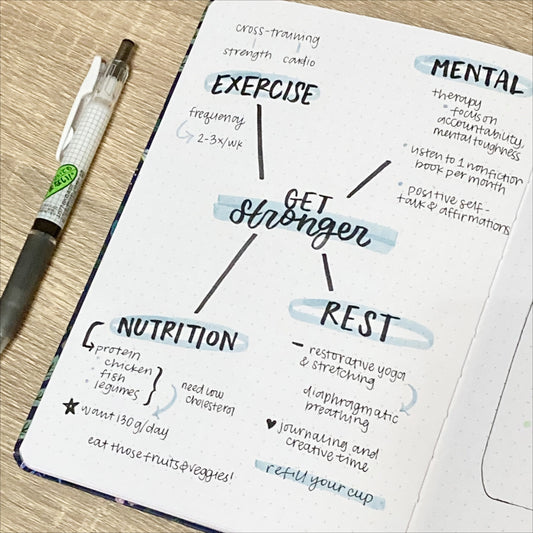 cross-training
strength cardio
EXERCISE
frequency
2-3x/wk
MENTAL
therapy
focus on
accountability,
mental toughness
listen to 1 nonfiction
book per month
positive self-
talk & affirmations
GET
stronger
NUTRITION
protein
chicken
fish
legumes
need low
cholesterol
want 130g/day
eat those fruits & veggies!
REST
restorative yoga
& stretching
diaphragmatic
breathing
journaling and
creative time
refill your cup